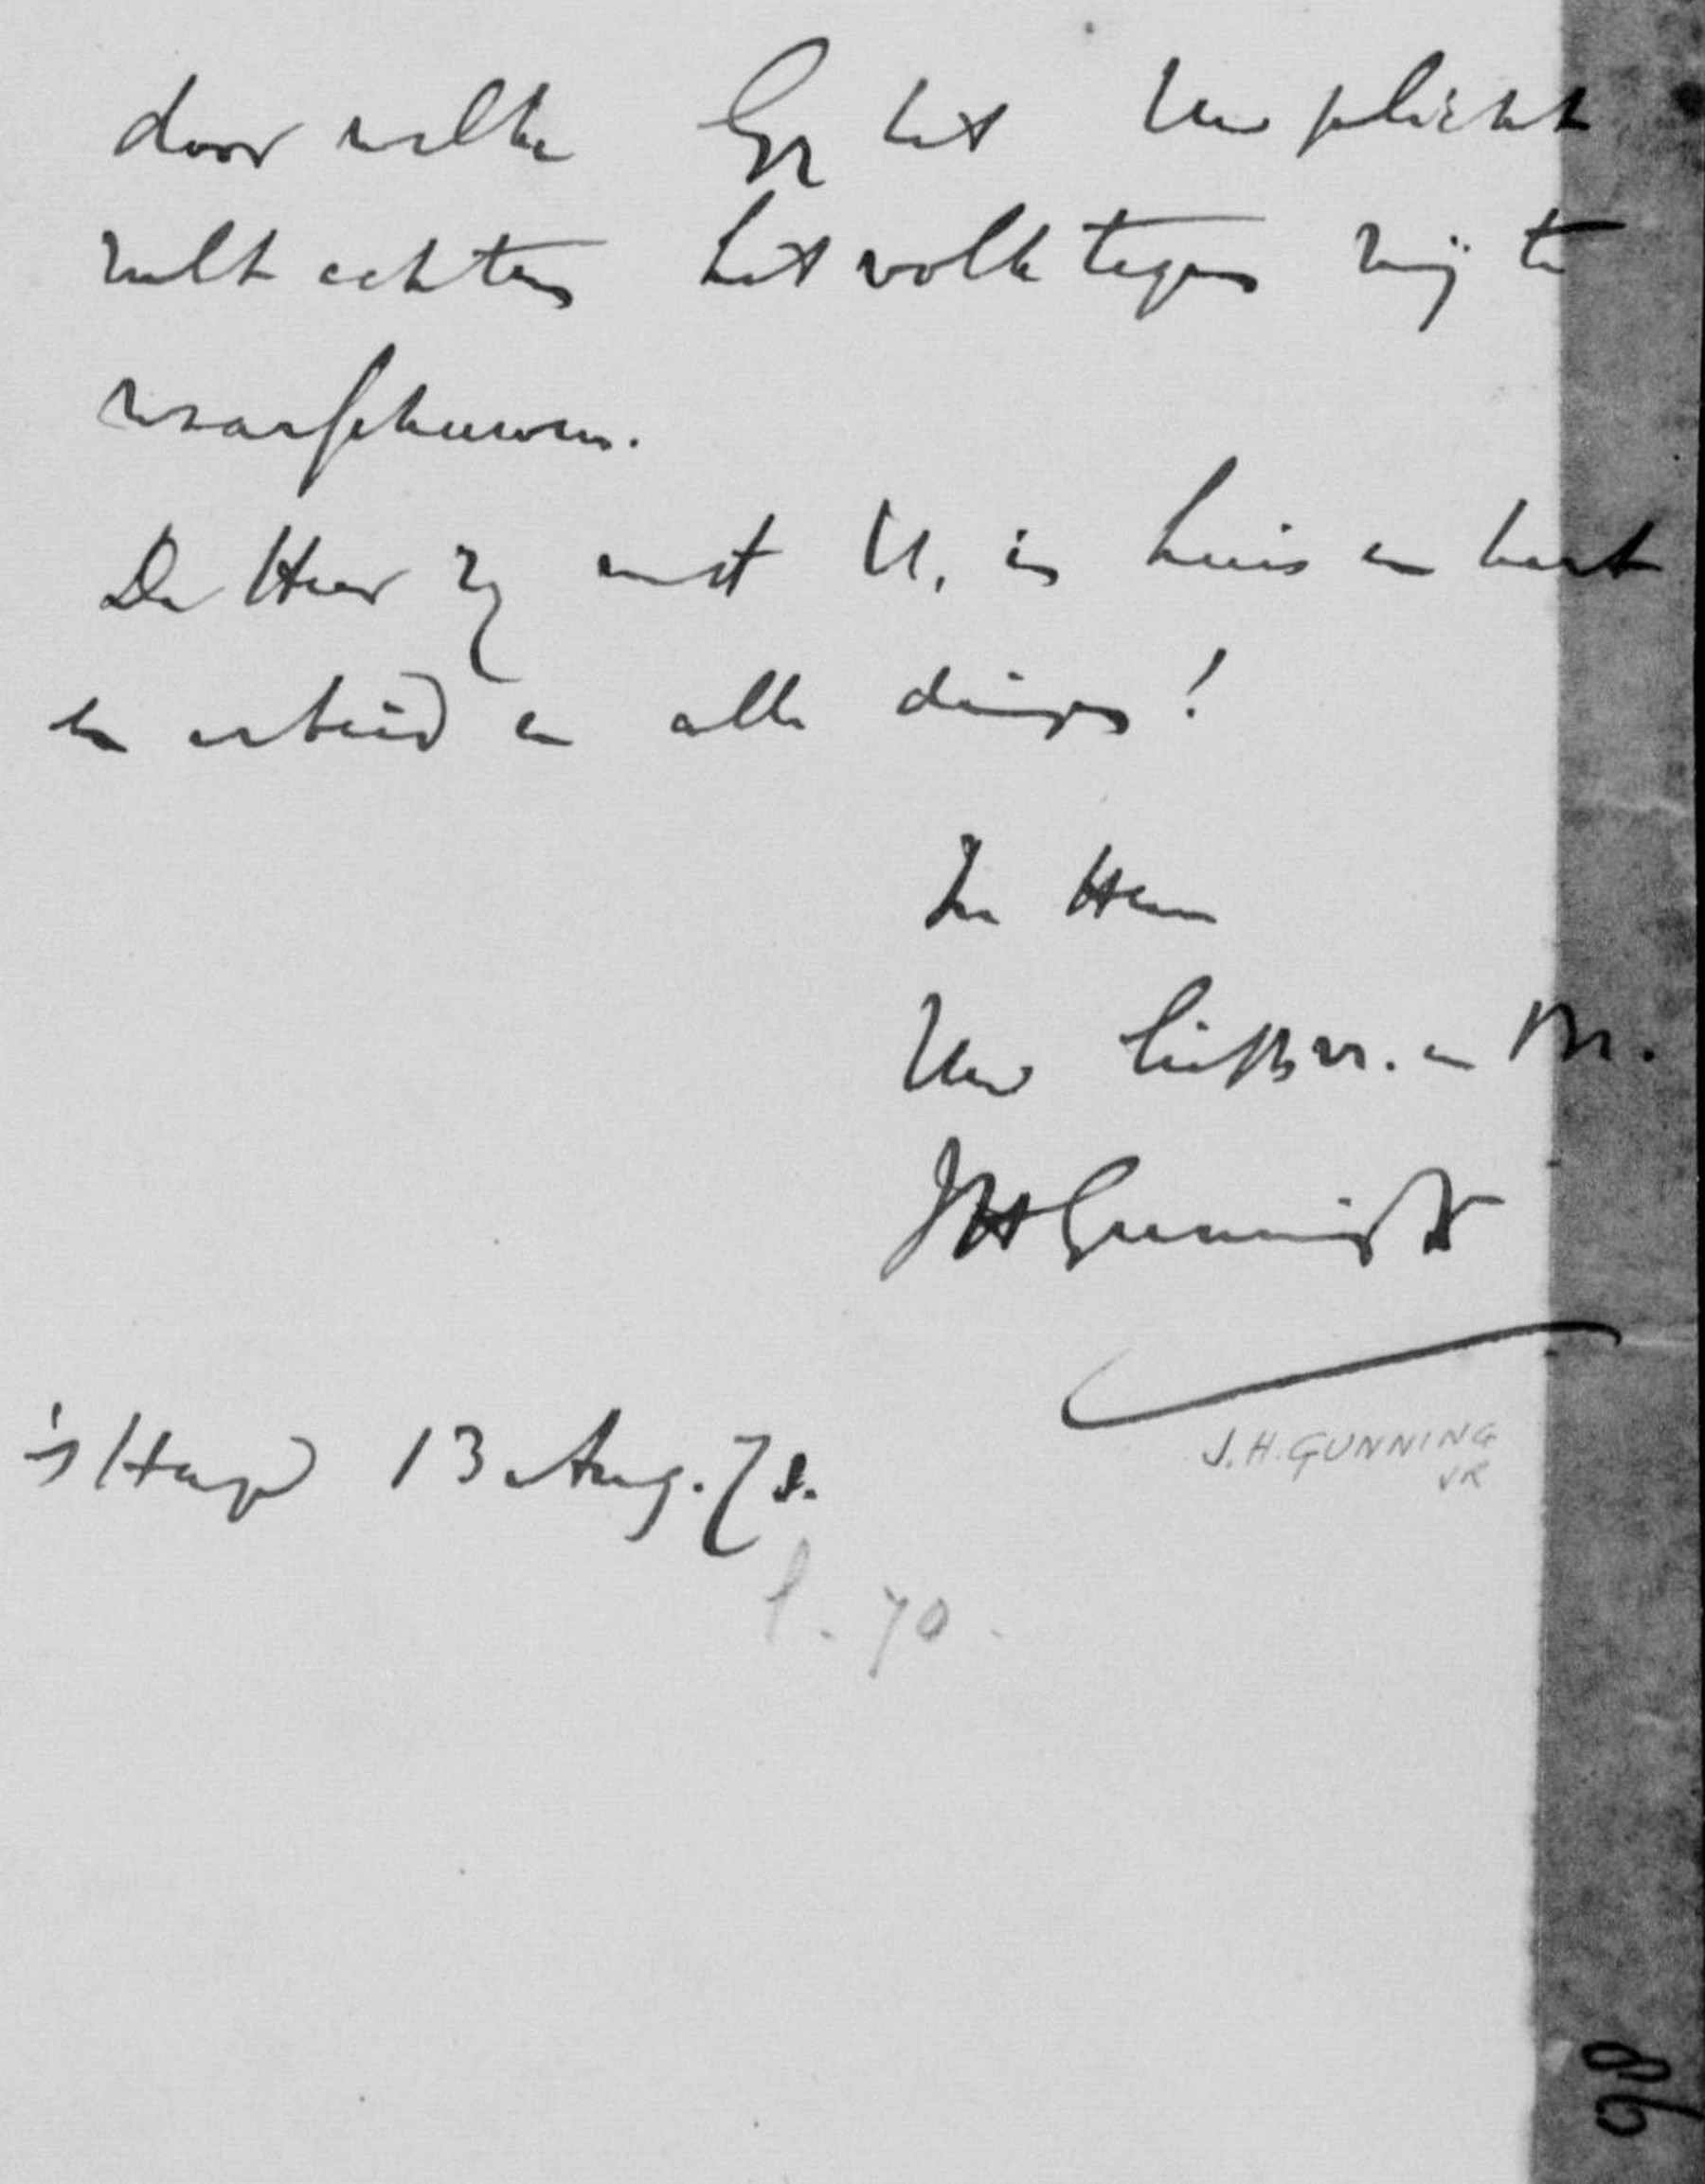 door welke Gy het Uw plicht
zult achten het volk tegen mij te
waarschuwen.
De Heer zy met U, in huis en hart
en arbeid en alle dingen!
In Hem
Uw liefh. vr. en Br.
JHGunning Jr
's Hage 13 Aug. 78.
J.H. GUNNING
JR
f. 70.
98